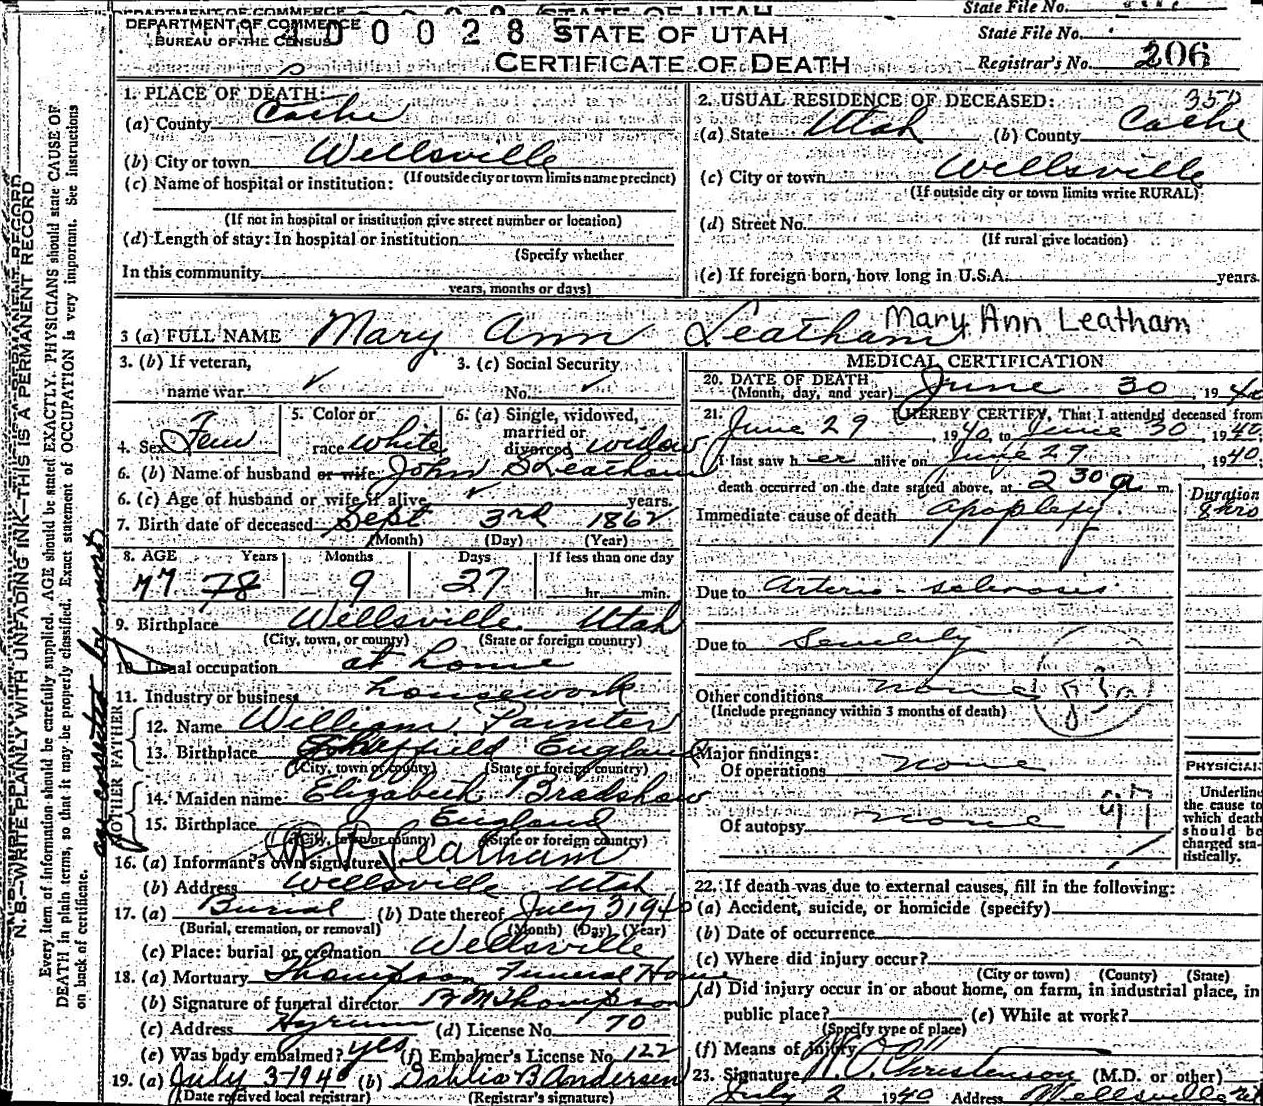 DEPARTMENT OF COMMERCE STATE OF UTAH State File No.
DEPARTMENT OF COMMERCE
BUREAU OF THE CENSUS
0 0 2 8 STATE OF UTAH State File No.
CERTIFICATE OF DEATH Registrar's No. 206
1. PLACE OF DEATH:
(a) County Cache
(b) City or town Wellsville
(If outside city or town limits name precinct)
(c) Name of hospital or institution:
(If not in hospital or institution give street number or location)
(d) Length of stay: In hospital or institution
(Specify whether
In this community
years, months or days)
2. USUAL RESIDENCE OF DECEASED:
(a) State Utah (b) County Cache
(c) City or town Wellsville
(If outside city or town limits write RURAL)
(d) Street No.
(If rural give location)
(e) If foreign born, how long in U.S.A. years.
3 (a) FULL NAME Mary Ann Leatham Mary Ann Leatham
3. (b) If veteran, 3. (c) Social Security
name war ✓ No. ✓
4. Sex Fem 5. Color or race white 6. (a) Single, widowed, married or divorced widow
6. (b) Name of husband or wife John S Leatham
6. (c) Age of husband or wife if alive ✓ years.
7. Birth date of deceased Sept 3rd 1862
(Month) (Day) (Year)
8. AGE Years Months Days If less than one day
77 78 9 27 hr. min.
9. Birthplace Wellsville Utah
(City, town, or county) (State or foreign country)
10. Usual occupation at home
11. Industry or business housework
FATHER
12. Name William Painter
13. Birthplace Sheffield England
(City, town or county) (State or foreign country)
MOTHER
14. Maiden name Elizabeth Bradshaw
15. Birthplace England
(City, town or county) (State or foreign country)
16. (a) Informant's own signature Leatham
(b) Address Wellsville Utah
17. (a) Burial (b) Date thereof July 3 1940
(Burial, cremation, or removal) (Month) (Day) (Year)
(c) Place: burial or cremation Wellsville
18. (a) Mortuary Thompson Funeral Home
(b) Signature of funeral director R M Thompson
(c) Address Hyrum (d) License No. 70
(e) Was body embalmed? yes (f) Embalmer's License No. 122
19. (a) July 3-1940 (b) Dahlia B Andersen
(Date received local registrar) (Registrar's signature)
MEDICAL CERTIFICATION
20. DATE OF DEATH
(Month, day, and year) June 30, 1940
21. I HEREBY CERTIFY, That I attended deceased from
June 29, 1940, to June 30 1940;
I last saw her alive on June 29, 1940;
death occurred on the date stated above, at 2 30 a m.
Duration
Immediate cause of death Apoplexy 8 hrs
Due to Arterio-sclerosis
Due to
Other conditions none 83a
(Include pregnancy within 3 months of death)
Major findings:
Of operations none
Of autopsy none 97
PHYSICIAN
Underline
the cause to
which death
should be
charged sta-
tistically.
22. If death was due to external causes, fill in the following:
(a) Accident, suicide, or homicide (specify)
(b) Date of occurrence
(c) Where did injury occur?
(City or town) (County) (State)
(d) Did injury occur in or about home, on farm, in industrial place, in
public place? (e) While at work?
(Specify type of place)
(f) Means of injury
23. Signature Christenson (M.D. or other)
July 2 1940 Address Wellsville
N. B.—WRITE PLAINLY WITH UNFADING INK—THIS IS A PERMANENT RECORD
Every item of information should be carefully supplied. AGE should be stated EXACTLY. PHYSICIANS should state CAUSE OF
DEATH in plain terms, so that it may be properly classified. Exact statement of OCCUPATION is very important. See instructions
on back of certificate.